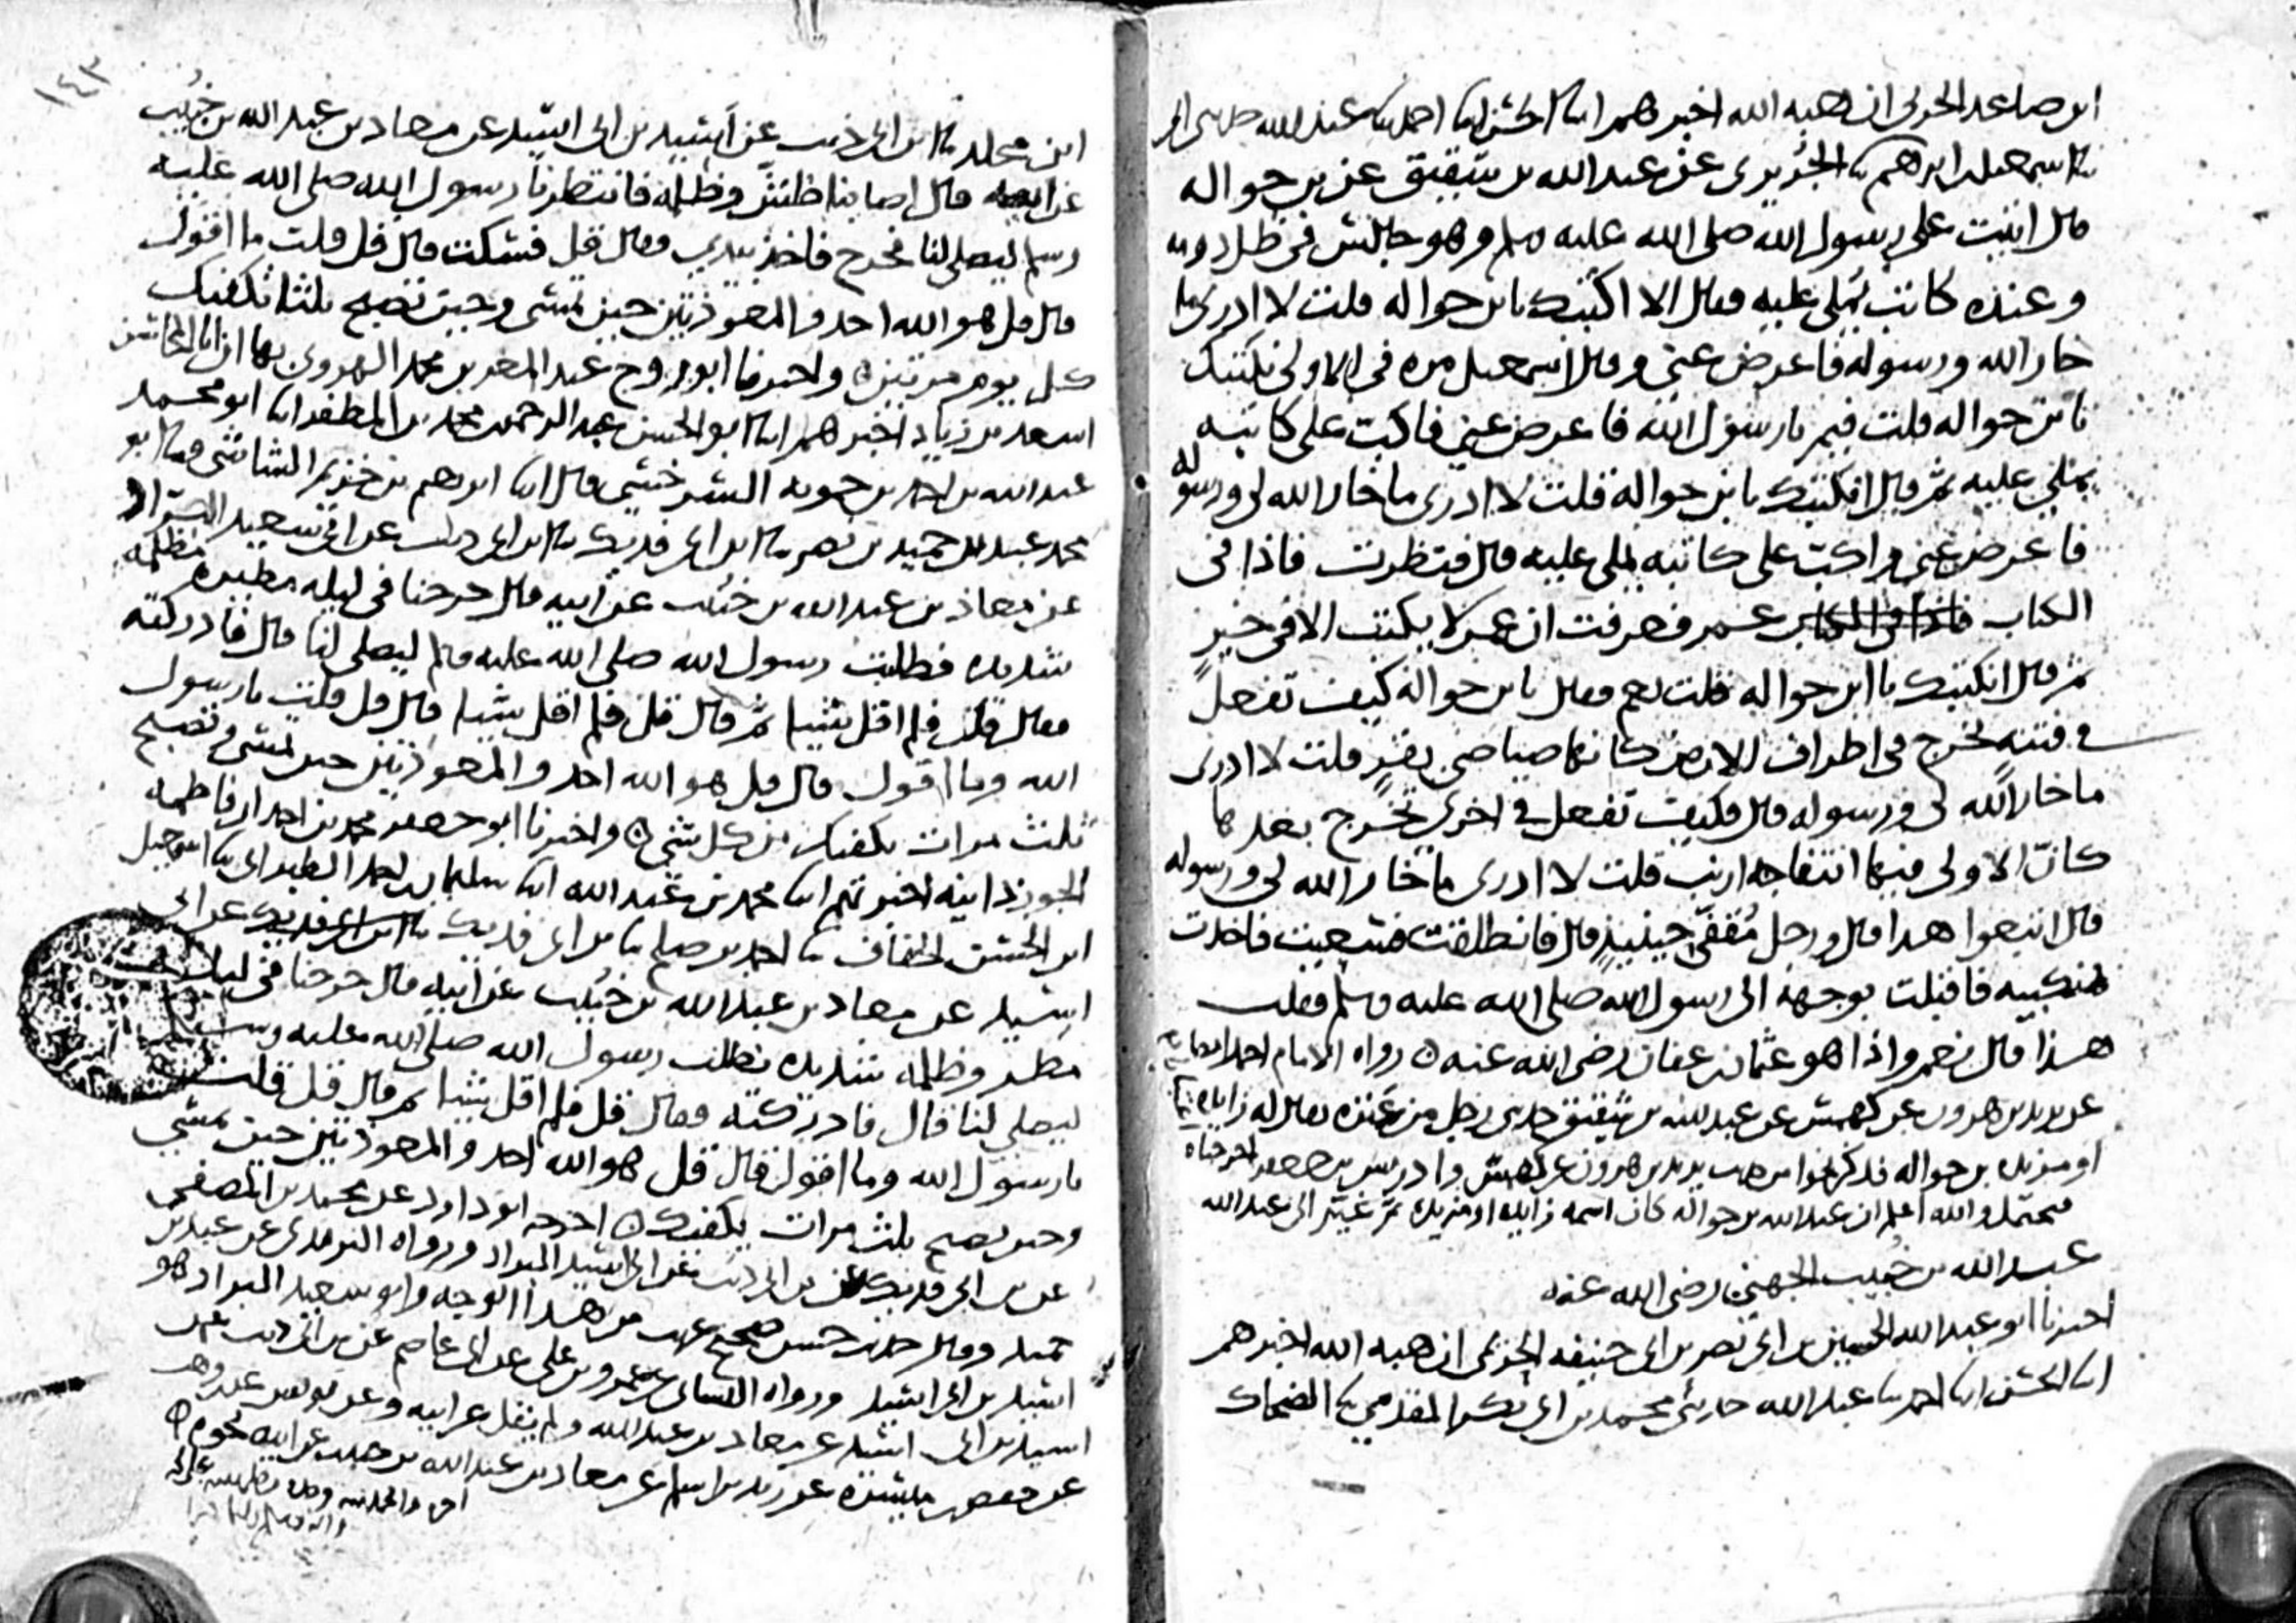 ابن صاعد الحربي ان هبه الله اخبرهم ابنا الحسن ابنا احمد ثنا عبد الله حدثني ابي
ثنا اسمعيل بن ابرهيم ثنا الجريري عن عبد الله بن شقيق عن بن حواله
قال اتيت على رسول الله صلى الله عليه وسلم وهو جالس في ظل دومه
وعنده كاتب يملي عليه فقال الا اكتبك يا بن حواله قلت لا ادري ما
خار الله ورسوله فاعرض عني وقال اسمعيل مره في الاولى نكتبك
يا بن حواله قلت فيم يا رسول الله فاعرض عني فاكب على كاتبه
يملي عليه ثم قال انكتبك يا بن حوالة قلت لا ادري ما خار الله لي ورسوله
فاعرض عني واكب على كاتبه يملي عليه قال فنظرت فاذا في
الكتاب عمر فعرفت ان عمر لا يكتب الا في خير
ثم قال انكتبك يا ابن حواله قلت نعم فقال يا بن حوالة كيف تفعل
في فتنه تخرج في اطراف الارض كانها صياصي بقر قلت لا ادري
ما خار الله لي ورسوله قال فكيف تفعل في اخرى تخرج بعدها
كان الاولى فيها انتفاجه ارنب قلت لا ادري ما خار الله لي ورسوله
قال اتبعوا هذا قال ورجل مقفي حينئذ قال فانطلقت فسعيت فاخذت
بمنكبيه فاقبلت بوجهه الى رسول الله صلى الله عليه وسلم فقلت
هذا قال نعم واذا هو عثمان بن عفان رضي الله عنه رواه الامام احمد ايضا
عن يزيد بن هرون عن كهمس عن عبد الله بن شقيق حدثني رجل من عنزه يقال له زايده
او مزيده بن حواله فذكر نحوا من حديث يزيد بن هرون عن كهمس وادريس بن جعفر اخرجناه
محتمل والله اعلم ان عبد الله بن حوالة كان اسمه زايده او مزيده ثم غير الى عبد الله
عبد الله بن خبيب الجهني رضي الله عنه
اخبرنا ابو عبد الله الحسين بن ابي نصر بن ابي حنيفه الحربي ان هبه الله اخبرهم
ابنا الحسن ابنا احمد ثنا عبد الله حدثني محمد بن ابي بكر المقدمي ثنا الضحاك
١٤٣
ابن مخلد ثنا بن ابي ذيب عن اسيد بن ابي اسيد عن معاذ بن عبد الله بن خبيب
عن ابيه قال اصابنا طش وظلمه فانتظرنا رسول الله صلى الله عليه
وسلم ليصلي لنا فخرج فاخذ بيدي فقال قل فسكت قال قل قلت ما اقول
قال قل هو الله احد والمعوذتين حين تمسي وحين تصبح ثلثا تكفيك
كل يوم مرتين واخبرنا ابو روح عبد المعز بن محمد الهروي بها ان ابا المحاسن
اسعد بن زياد اخبرهم ابنا ابو الحسن عبد الرحمن بن محمد بن المظفر ابنا ابو محمد
عبد الله بن احمد بن حمويه السرخسي قال ابنا ابرهيم بن خزيم الشاشي ثنا ابو
محمد عبد بن حميد بن نصر ثنا بن ابي فديك ثنا بن ابي ذيب عن ابي سعيد البراد
عن معاذ بن عبد الله بن خبيب عن ابيه قال خرجنا في ليله مطيره مظلمه
شديده فطلبت رسول الله صلى الله عليه وسلم ليصلي لنا قال فادركته
فقال قل فلم اقل شيا ثم قال قل فلم اقل شيا قال قل قلت يا رسول
الله وما اقول قال قل هو الله احد والمعوذتين حين تمسي وتصبح
ثلث مرات تكفيك من كل شي واخبرنا ابو جعفر محمد بن احمد ان فاطمه
الجوزدانيه اخبرتهم ابنا محمد بن عبد الله ابنا سليمان بن احمد الطبراني ثنا اسمعيل
ابن الحسن الخفاف ثنا احمد بن صلح ثنا بن ابي فديك عن ابي
اسيد عن معاذ بن عبد الله بن خبيب عن ابيه قال خرجنا في ليله
مطر وظلمه شديده نطلب رسول الله صلى الله عليه وسلم
ليصلي لنا قال فادركته فقال قل فلم اقل شيا ثم قال قل قلت
يا رسول الله وما اقول قال قل هو الله احد والمعوذتين حين تمسي
وحين تصبح ثلث مرات يكفيك اخرجه ابو داود عن محمد بن المصفى
عن بن ابي فديك عن بن ابي ذيب عن ابي اسيد البراد ورواه الترمذي عن عبد بن
حميد وقال حديث حسن صحيح غريب من هذا الوجه وابو سعيد البراد هو
اسيد بن ابي اسيد ورواه النسائي عن عمرو بن علي عن ابي عاصم عن بن ابي ذيب عن
اسيد بن ابي اسيد عن معاذ بن عبد الله ولم يقل عن ابيه وعن يونس عن بن وهب
عن حفص بن ميسره عن زيد بن اسلم عن معاذ بن عبد الله بن خبيب عن ابيه نحوه